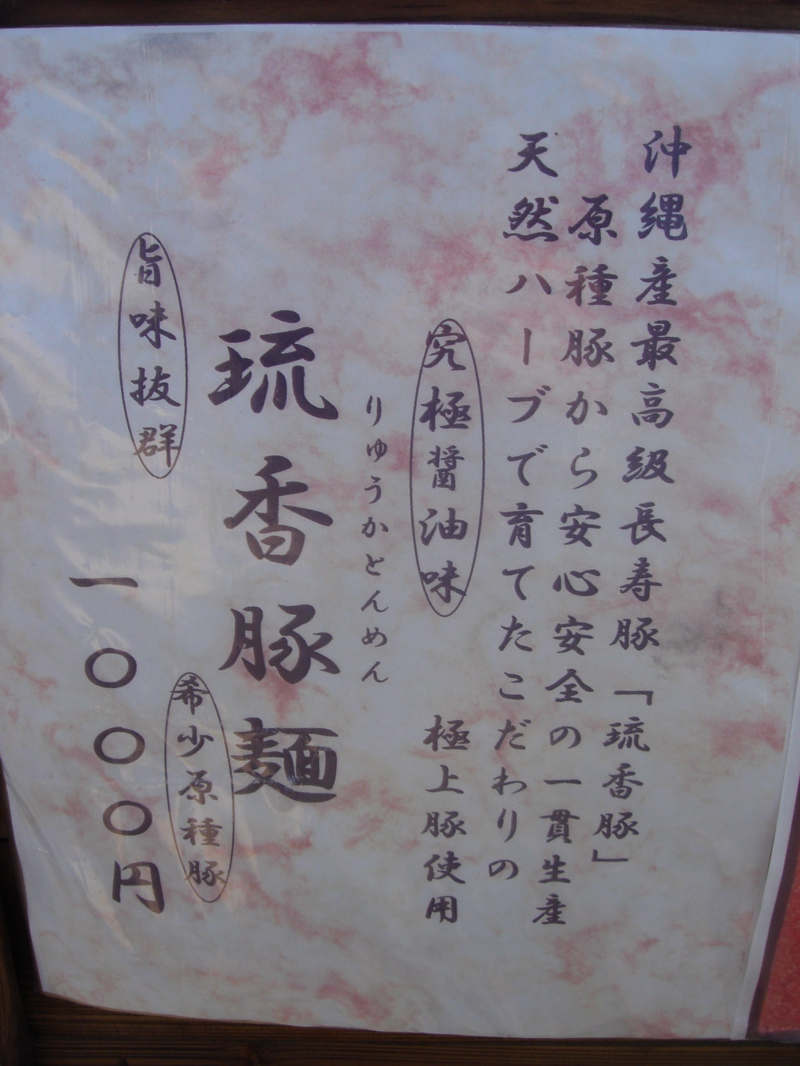 沖縄産最高級長寿豚「琉香豚」
原種豚から安心安全の一貫生産
天然ハーブで育てたこだわりの
極上豚使用
究極醤油味
りゅうかとんめん
琉香豚麺
希少原種豚
旨味抜群
一〇〇〇円